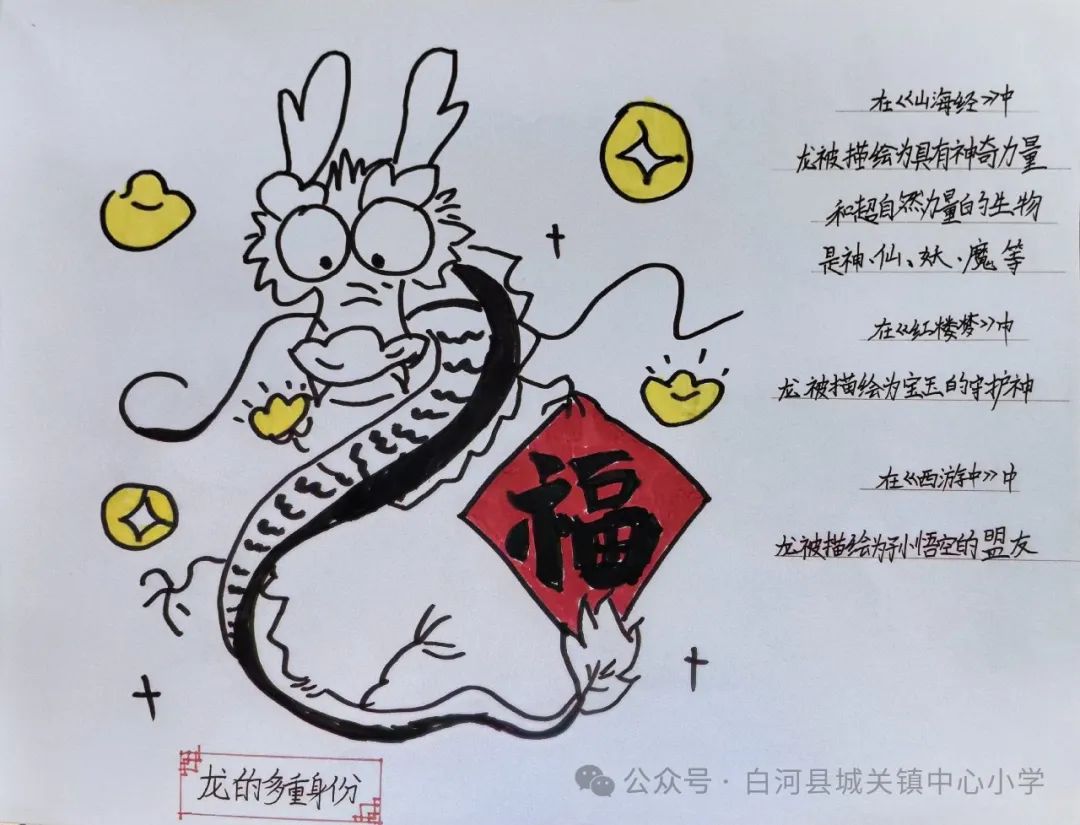 在《山海经》中
龙被描绘为具有神奇力量
和超自然力量的生物
是神、仙、妖、魔等
在《红楼梦》中
龙被描绘为宝玉的守护神
在《西游记》中
龙被描绘为孙悟空的盟友
福
龙的多重身份
公众号·白河县城关镇中心小学